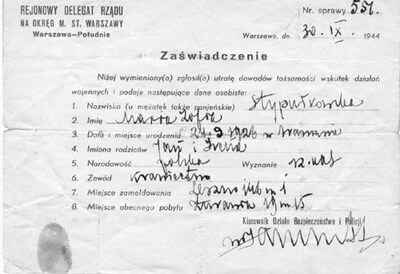 REJONOWY DELEGAT RZĄDU
NA OKRĘG M. ST. WARSZAWY
Warszawa-Południe
Nr. sprawy: 551.
Warszawa, dn. 30. IX. 1944
Zaświadczenie
Niżej wymieniony(a) zgłosił(a) utratę dowodów tożsamości wskutek działań
wojennych i podaje następujące dane osobiste:
1. Nazwisko (u mężatek także panieńskie) Stypułkowska
2. Imię Maria Zofia
3. Data i miejsce urodzenia 24-9 1926 w Warszawie
4. Imiona rodziców Jan i Irena
5. Narodowość polska Wyznanie rz. kat
6. Zawód
7. Miejsce zameldowania Leszno m 1
8. Miejsce obecnego pobytu Żurawia m 15
Kierownik Działu Bezpieczeństwa i Policji